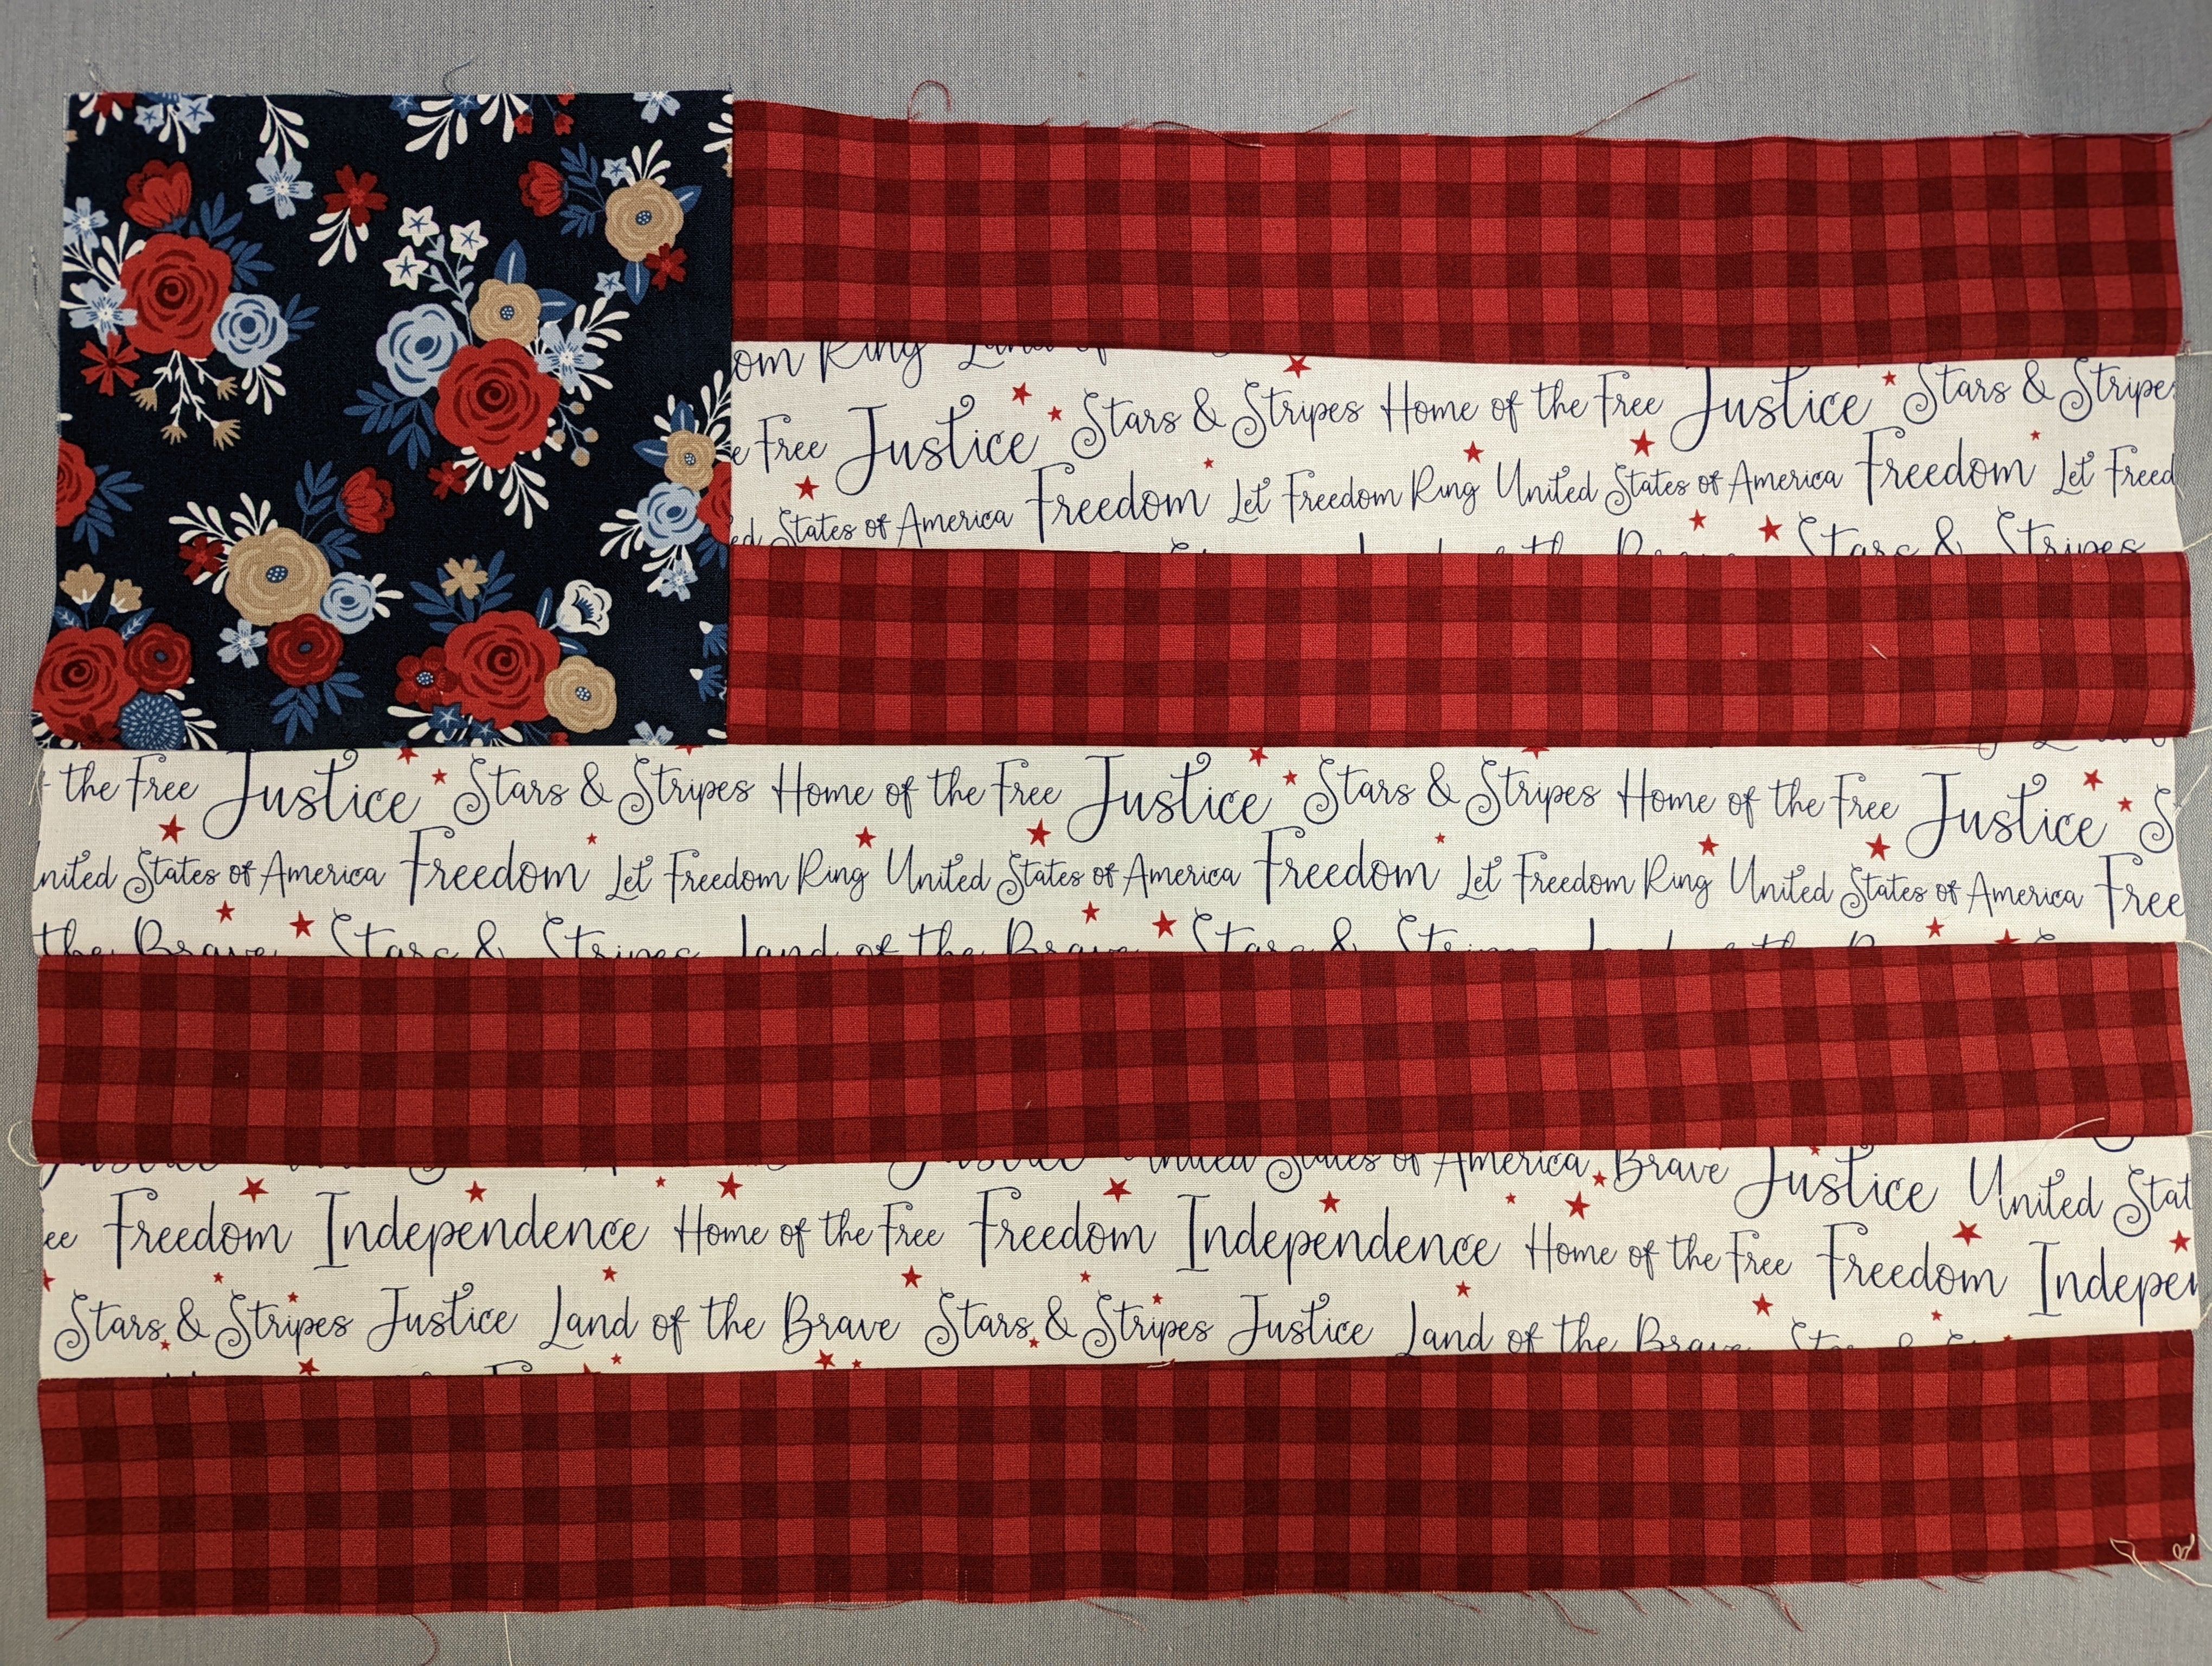 om Ring Land of
e Free Justice Stars & Stripes Home of the Free Justice Stars & Stripes
ed States of America Freedom Let Freedom Ring United States of America Freedom Let Freed
Stars & Stripes
the Free Justice Stars & Stripes Home of the Free Justice Stars & Stripes Home of the Free Justice S
nited States of America Freedom Let Freedom Ring United States of America Freedom Let Freedom Ring United States of America Free
the Brave Stars & Stripes Land of the Brave Stars & Stripes
Justice United States of America Brave Justice United Stat
ee Freedom Independence Home of the Free Freedom Independence Home of the Free Freedom Indepen
Stars & Stripes Justice Land of the Brave Stars & Stripes Justice Land of the Brave